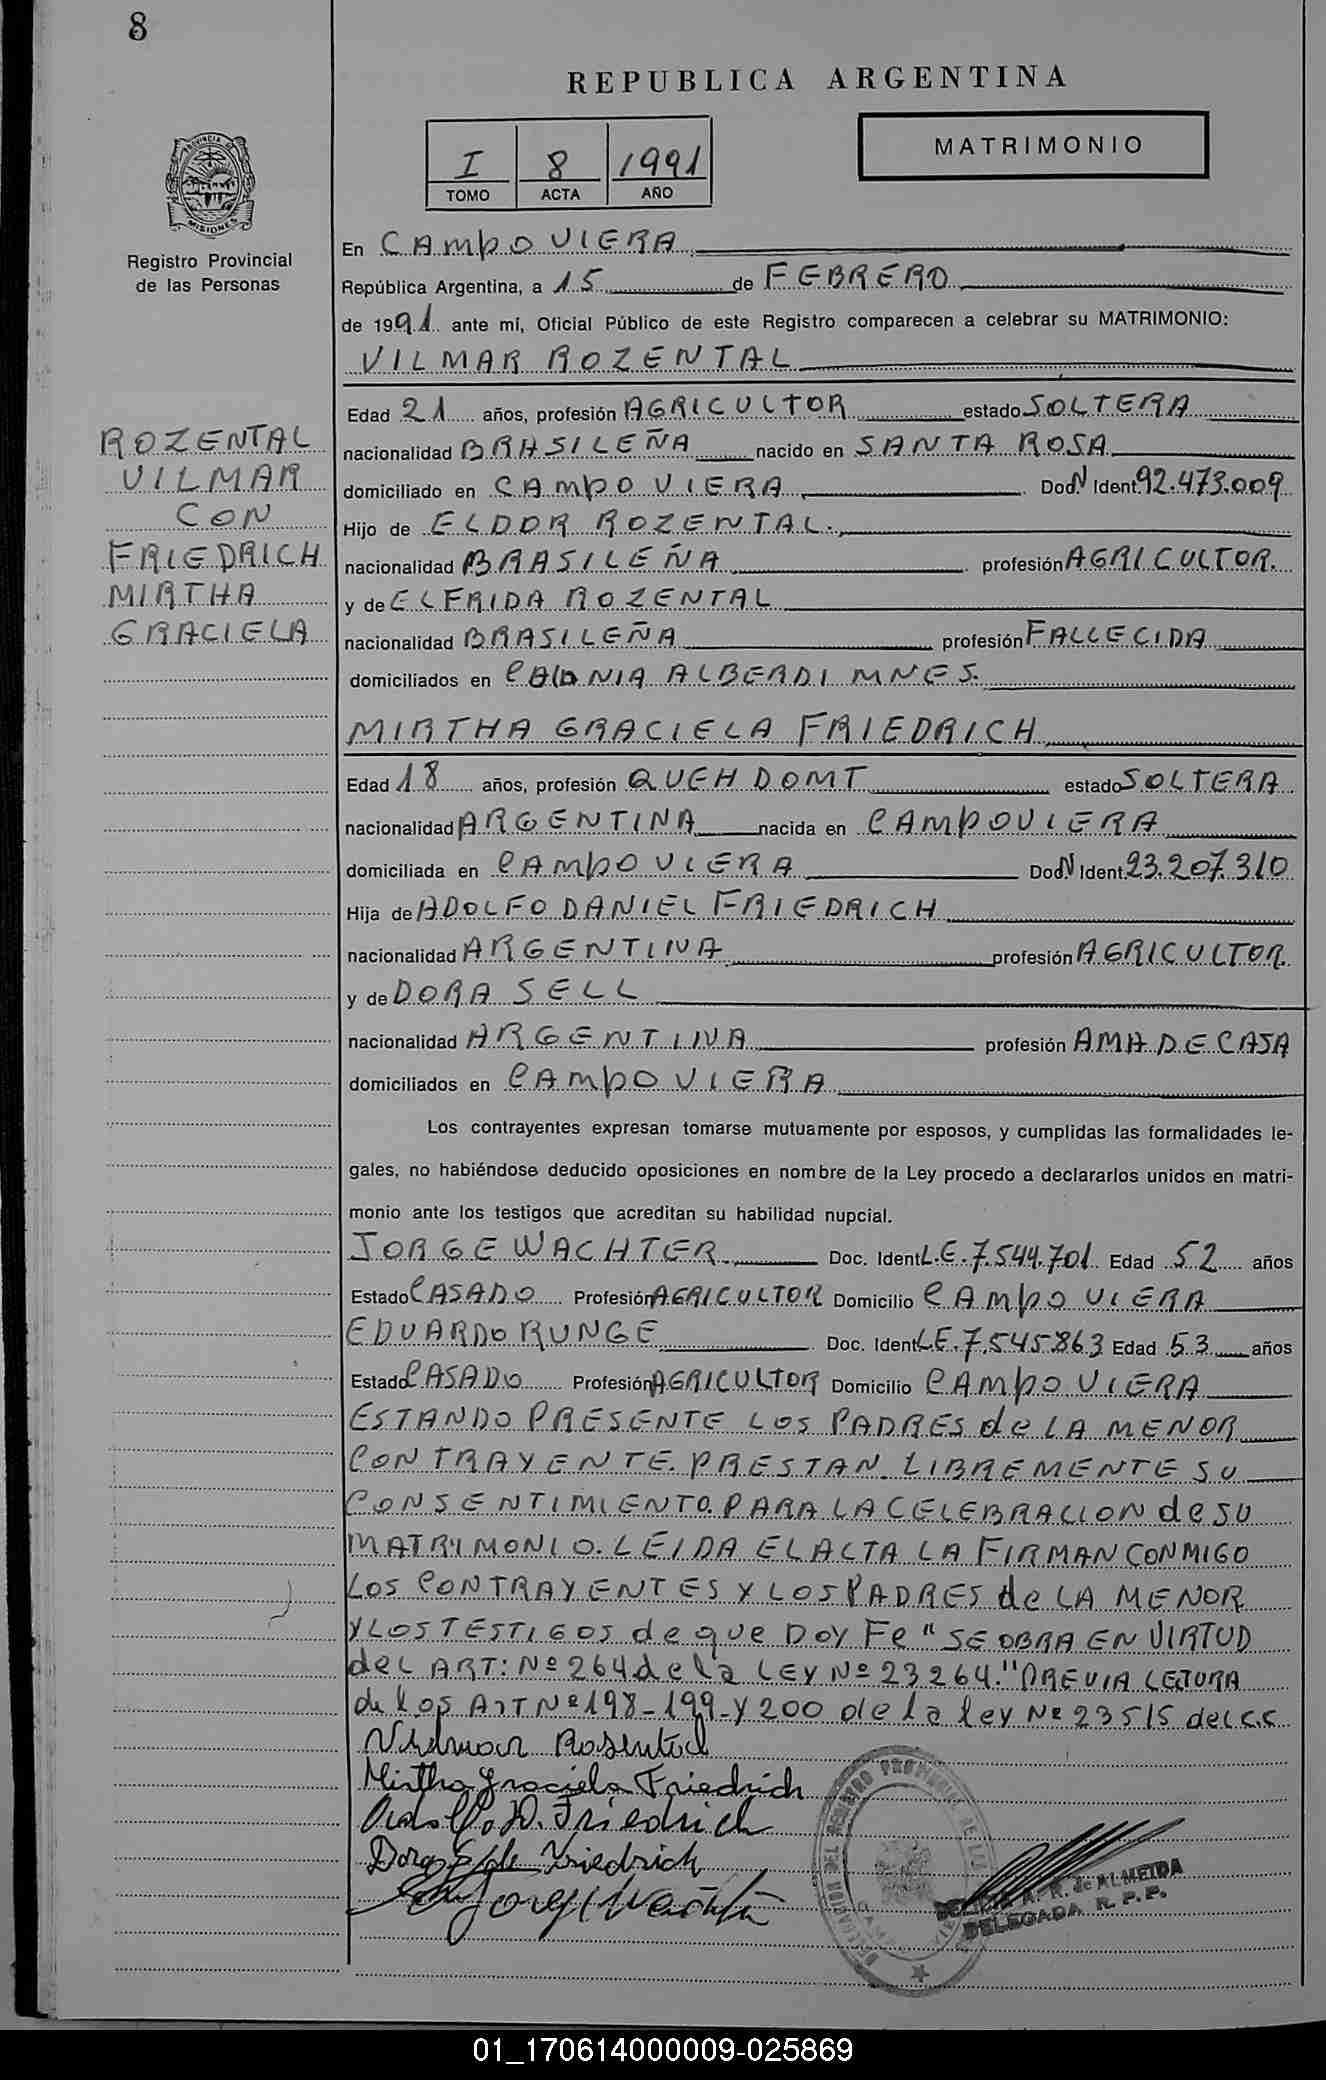 8
REPUBLICA ARGENTINA
I 8 1991
TOMO ACTA AÑO
MATRIMONIO
PROVINCIA DE
MISIONES
Registro Provincial
de las Personas
ROZENTAL
VILMAR
CON
FRIEDRICH
MIRTHA
GRACIELA
En CAMPO VIERA
República Argentina, a 15 de FEBRERO
de 1991 ante mí, Oficial Público de este Registro comparecen a celebrar su MATRIMONIO:
VILMAR ROZENTAL
Edad 21 años, profesión AGRICULTOR estado SOLTERA
nacionalidad BRASILEÑA nacido en SANTA ROSA
domiciliado en CAMPO VIERA DodN Ident. 92.473.009
Hijo de ELDOR ROZENTAL.
nacionalidad BRASILEÑA profesión AGRICULTOR.
y de ELFRIDA ROZENTAL
nacionalidad BRASILEÑA profesión FALLECIDA
domiciliados en COLONIA ALBERDI MNES.
MIRTHA GRACIELA FRIEDRICH
Edad 18 años, profesión QUEH DOMT estado SOLTERA
nacionalidad ARGENTINA nacida en CAMPO VIERA
domiciliada en CAMPO VIERA DodN Ident. 23.207.310
Hija de ADOLFO DANIEL FRIEDRICH
nacionalidad ARGENTINA profesión AGRICULTOR.
y de DORA SELL
nacionalidad ARGENTINA profesión AMA DE CASA
domiciliados en CAMPO VIERA
Los contrayentes expresan tomarse mutuamente por esposos, y cumplidas las formalidades le-
gales, no habiéndose deducido oposiciones en nombre de la Ley procedo a declararlos unidos en matri-
monio ante los testigos que acreditan su habilidad nupcial.
JORGE WACHTER Doc. Ident L.E. 7.544.701 Edad 52 años
Estado CASADO Profesión AGRICULTOR Domicilio CAMPO VIERA
EDUARDO RUNGE Doc. Ident L.E. 7.545.863 Edad 53 años
Estado CASADO Profesión AGRICULTOR Domicilio CAMPO VIERA
ESTANDO PRESENTE LOS PADRES de LA MENOR
CONTRAYENTE. PRESTAN LIBREMENTE SU
CONSENTIMIENTO. PARA LA CELEBRACION de SU
MATRIMONIO. LEIDA EL ACTA LA FIRMAN CONMIGO
LOS CONTRAYENTES Y LOS PADRES de LA MENOR
Y LOS TESTIGOS de que DOY Fe "SE OBRA EN VIRTUD
del ART: Nº 264 de la LEY Nº 23264." PREVIA LECTURA
de los ART Nº 198-199-Y 200 de la ley Nº 23515 del C.C
Vilmar Rosental
Mirtha Graciela Friedrich
Adolfo D. Friedrich
Dora S. de Friedrich
Jorge Wachter
DELEGACION DEL REGISTRO PROVINCIAL DE LAS
DELICIA A. R. de ALMEIDA
DELEGADA R.P.P.
01_170614000009-025869